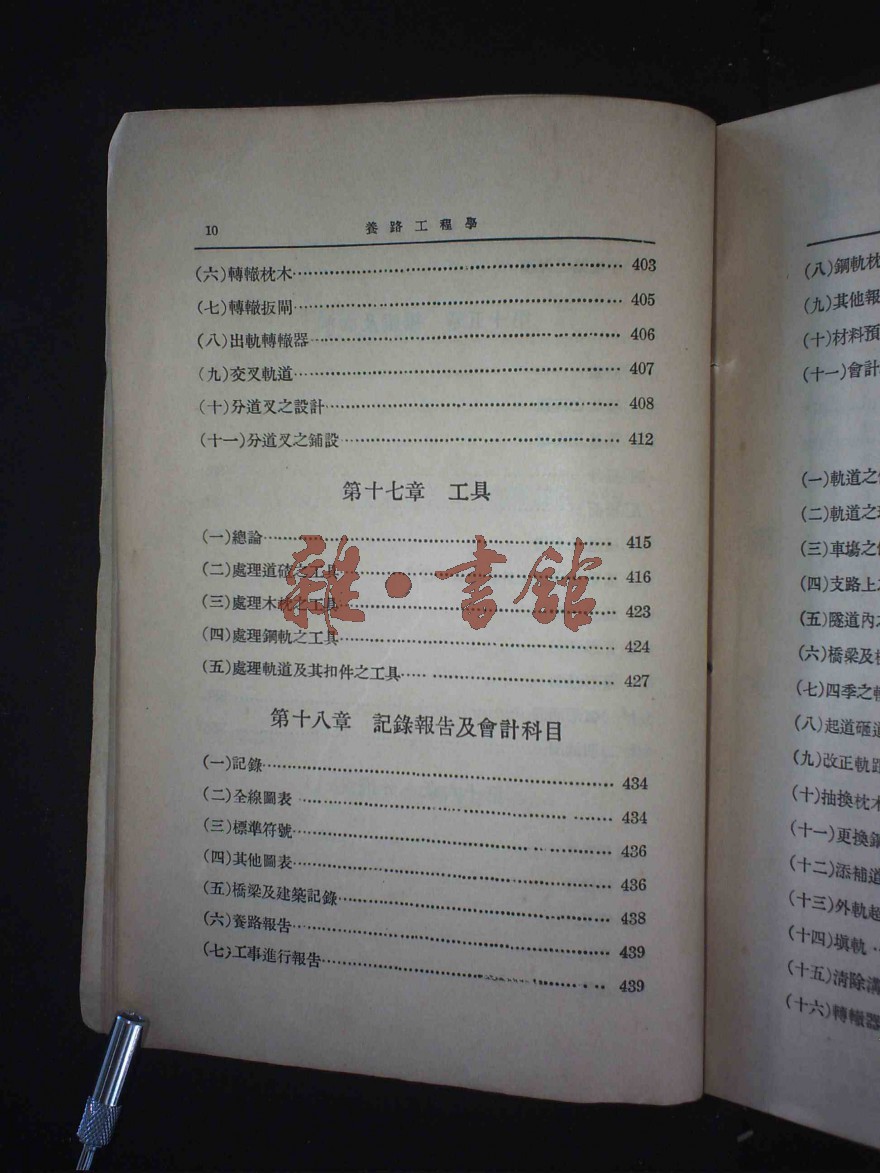 10 養路工程學
(六)轉轍枕木 403
(七)轉轍扳閘 405
(八)出軌轉轍器 406
(九)交叉軌道 407
(十)分道叉之設計 408
(十一)分道叉之鋪設 412
第十七章 工具
(一)總論 415
(二)處理道碴之工具 416
(三)處理木枕之工具 423
(四)處理鋼軌之工具 424
(五)處理軌道及其扣件之工具 427
第十八章 記錄報告及會計科目
(一)記錄 434
(二)全線圖表 434
(三)標準符號 436
(四)其他圖表 436
(五)橋梁及建築記錄 438
(六)養路報告 439
(七)工事進行報告 439
雜·書館
(八)鋼軌枕
(九)其他報
(十)材料預
(十一)會計
(一)軌道之
(二)軌道之
(三)車塲之
(四)支路上
(五)隧道內
(六)橋梁及
(七)四季之
(八)起道砸道
(九)改正軌距
(十)抽換枕木
(十一)更換鋼
(十二)添補道
(十三)外軌超
(十四)塡軌
(十五)清除溝
(十六)轉轍器